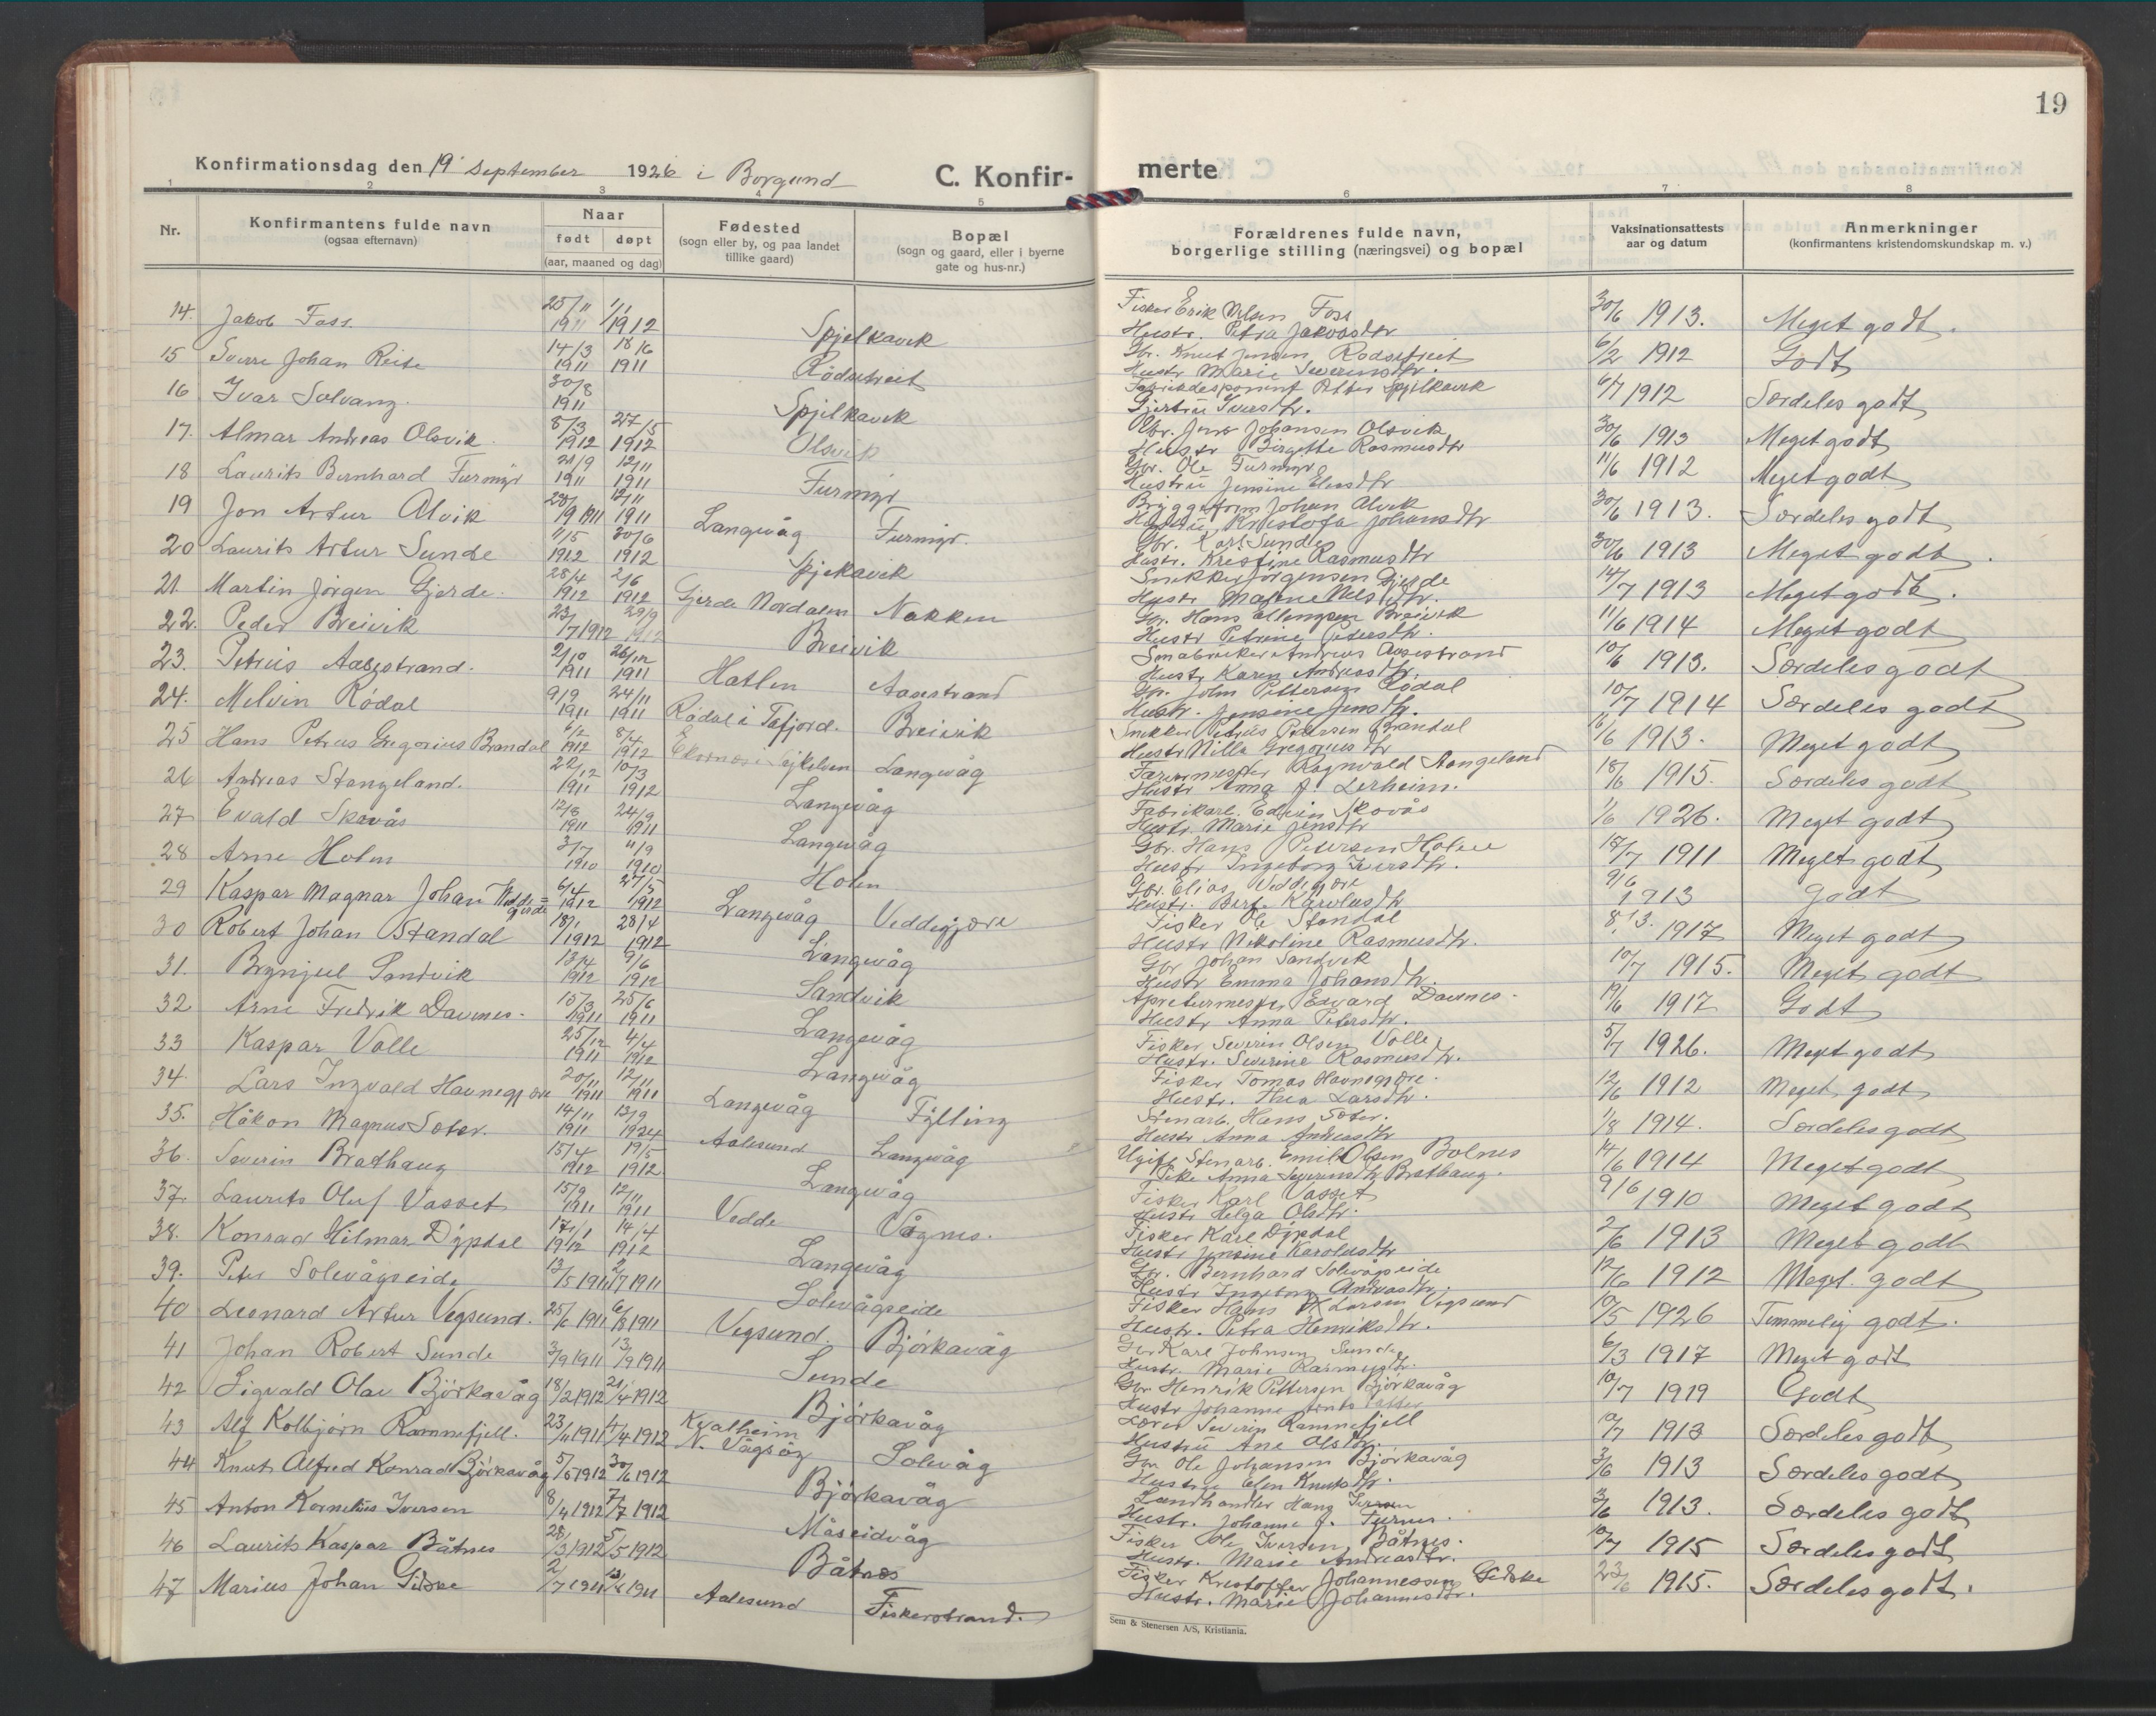 19
Konfirmationsdag den 19 september 1926 i Borgund
C. Konfir-
merte
1 2 3 4 5 6 7 8
Nr.
Konfirmantens fulde navn
(ogsaa efternavn)
Naar
født døpt
(aar, maaned og dag)
Fødested
(sogn eller by, og paa landet
tillike gaard)
Bopæl
(sogn og gaard, eller i byerne
gate og hus-nr.)
Forældrenes fulde navn,
borgerlige stilling (næringsvei) og bopæl
Vaksinationsattests
aar og datum
Anmerkninger
(konfirmantens kristendomskundskap m. v.)
14. Jakob Foss. 25/11 1911 1/1 1912 Spjelkavik Fisker Erik Nilsen Foss Hustr. Petra Jakobsdtr 30/6 1913. Meget godt.
15 Sverre Johan Reite 14/3 1911 18/6 1911 Rödsetreit Gbr. Knut Jensen Rödsetreit Hustr Marie Severinsdtr. 6/2 1912 Godt
16 Ivar Solvang. 30/8 1911 Spjelkavik Petter Spjelkavik Gjertrü Iversdtr. 6/7 1912 Særdeles godt
17. Almar Andreas Olsvik. 8/3 1912 27/5 1912 Olsvik Gbr. Jens Johansen Olsvik Hustr Birgitte Rasmusdtr 30/6 1913 Meget godt
18 Laurits Bernhard Furmyr 21/9 1911 12/11 1911 Furmyr Gbr. Ole Furmyr Hustrü Jensine Eliasdtr 11/6 1912 Meget godt
19 Jon Artur Alvik 1911 12/11 1911 Langevåg Furmyr. Johan Alvik Hustru Kristofa Johansdtr 30/6 1913. Særdeles godt
20 Laurits Artur Sunde 11/5 1912 30/6 1912 Spjekavik Gbr. Karl Sunde Hustr. Kristine Rasmusdtr 30/6 1913 Meget godt.
21. Martin Jörgen Gjerde. 28/4 1912 2/6 1912 Gjerde Nordalen Nakken Snekker Jörgensen Gjerde Hustr Malene Nelsdtr. 14/7 1913 Meget godt.
22. Peder Breivik 23/7 1912 29/9 1912 Breivik Gbr. Hans Ellingsen Breivik Hustr Petrine Petersdtr. 11/6 1914 Meget godt
23. Petrüs Aasestrand. 2/10 1911 26/12 1911 Hatlen Aasestrand Andreas Aasestrand Hustr Karen Andreasdtr. 10/6 1913. Særdeles godt
24. Melvin Rödal 9/9 1911 24/11 1911 Rödal i Tafjord. Breivik Gbr. John Pettersen Rödal Hustr. Jensine Jensdtr. 10/7 1914 Særdeles godt
25 Hans Petrus Gregorius Brandal 6/2 1912 8/4 1912 Ekornæs i Sykelven Langevåg Snekker Petrus Petersen Brandal Hustr Milla Gregorius dtr 6/6 1913. Meget godt
26 Andreas Stangeland. 22/12 1911 10/3 1912 Langevåg Farvermester Ragnvald Stangeland Hustr Anna J. Lerheim. 18/6 1915. Særdeles godt
27 Evald Skovås 12/8 1911 24/9 1911 Langevåg Fabrikarb. Edvin Skovås Hustr. Marie Jensdtr 1/6 1926. Meget godt
28 Arne Holen 3/7 1910 11/9 1910 Holen Gbr. Hans Petersen Holen Hustr Ingeborg Iversdtr. 18/7 1911 Meget godt
29 Kaspar Magnar Johan Veddegjerde 6/4 1912 27/5 1912 Langevåg Veddegjære Gbr. Elias Veddegjære Hustr. Berte Karolusdtr 9/6 1913 Godt
30 Robert Johan Standal 18/1 1912 28/4 1912 Langevåg Fisker Ole Standal Hustr Nikoline Rasmusdtr. 8/3. 1917 Meget godt
31. Brynjul Sandvik 13/4 1912 9/6 1912 Sandvik Gbr Johan Sandvik Hustr Emma Johansdtr. 10/7 1915. Meget godt
32 Arne Fredrik Davnes. 15/3 1911 25/6 1911 Langevåg Apreturmester Edvard Davnes. Hustr Anna Petersdtr. 19/6 1917 Godt
33 Kaspar Volle 25/12 1911 4/4 1912 Langevåg Fisker Severin Olsen Volle Hustr. Severine Rasmusdtr. 5/7 1926. Meget godt
34. Lars Ingvald Havnegjære 20/11 1911 12/11 1911 Langevåg Fylling Fisker Tomas Havnegjære. Hustr. Thea Larsdtr. 12/6 1912 Meget godt
35. Håkon Magnus Soter. 14/11 1911 13/9 1924 Aalesund Langevåg Stenarb. Hans Soter. Hustr Anna Andreasdtr 1/8 1914. Særdeles godt
36. Severin Brathaug 15/4 1912 19/5 1912 Langevåg Ugift Stenarb. Emil Olsen Bolnes Pike Anna Severinsdtr Brathaug. 14/6 1914 Meget godt
37. Laurits Oluf Vasset 15/9 1911 12/11 1911 Vedde Vågnes. Fisker Karl Vasset Hustr Helga Olsdtr. 9/6 1910 Meget godt
38. Konrad Hilmar Dypdal 17/1 1912 14/4 1912 Langevåg Fisker Karl Dypdal Hustr Jensine Karolusdtr 2/6 1913 Meget godt
39. Peter Solevågseide 13/5 1911 2/7 1911 Solevågseide Gbr. Bernhard Solevågseide Hustr Ingeborg Andreasdtr. 12/6 1912 Meget godt
40 Leonard Artur Vegsund. 25/6 1911 6/8 1911 Vegsund. Bjørkavåg Fisker Hans K Larsen Vegsund Hustr. Petra Henriksdtr. 10/5 1926 Temmelig godt.
41 Johan Robert Sunde 3/9 1911 13/9 1911 Sunde Gbr Karl Johnsen Sunde Hustr. Marie Rasmusdtr. 6/3 1917 Meget godt
42 Sigvald Olav Björkavåg 18/2 1912 21/4 1912 Bjørkavåg Gbr Henrik Pettersen Björkavåg Hustr Johanne 10/7 1919 Godt
43 Alf Kolbjørn Ramnefjell. 23/11 1911 4/4 1912 Kvalheim N. Vågsöy Solevåg Lærer Severin Ramnefjell Hustrü Ane Olsdtr. 10/7 1913 Særdeles godt
44 Knut Alfred Konrad Björkavåg 5/5 1912 30/6 1912 Björkavåg Gbr Ole Johansen Bjorkavåg Hustru Elen Knutsdtr. 3/6 1913 Særdeles godt
45 Anton Kornelius Iversen 8/4 1912 7/7 1912 Måseidvåg Landhandler Hans Iversen Hustr. Johanne J. Furnes. 3/6 1913. Særdeles godt
46 Laurits Kaspar Båtnes 28/3 1912 5/5 1912 Båtnæs Fisker Ole Iversen Båtnes. Hustr. Marie Andreasdtr. 10/7 1915 Særdeles godt
47 Marius Johan Giske 2/7 1911 1911 Aalesund Fiskerstrand. Fisker Kristoffer Johannessen Gidske Hustr. Marie Johannesdtr. 23/6 1915. Særdeles godt.
Sem & Stenersen A/S, Kristiania.